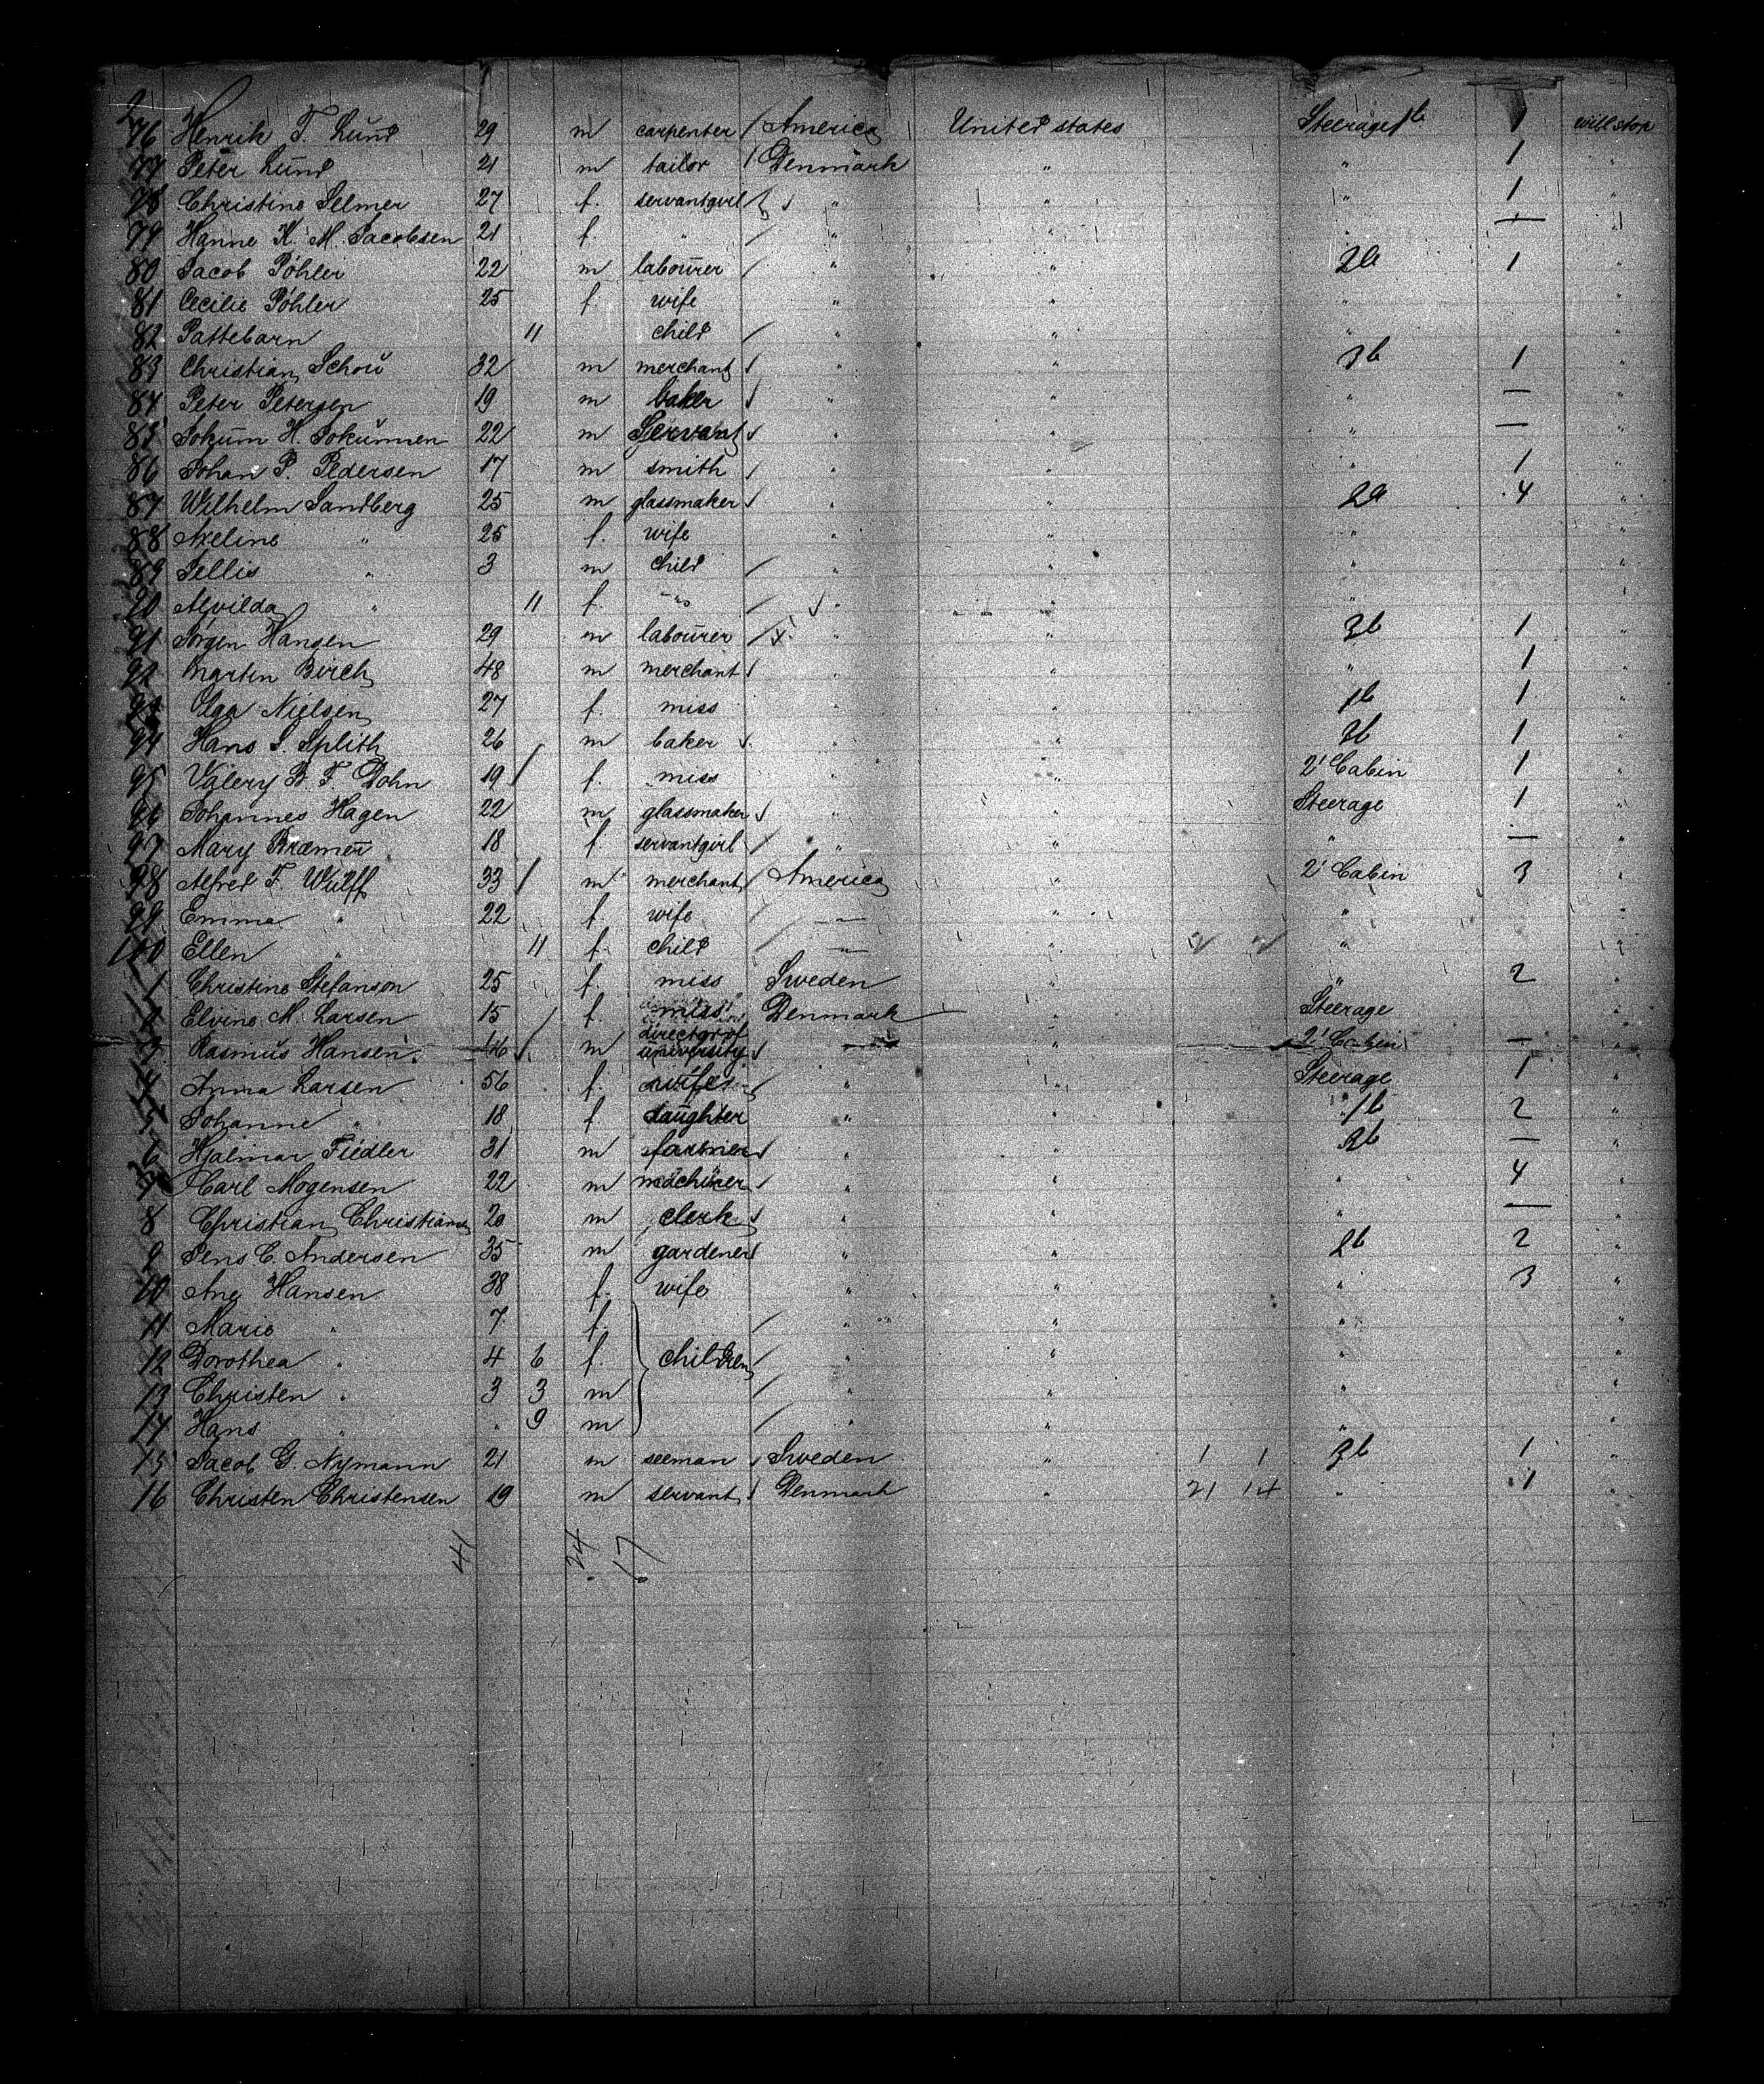 2
76 Henrik F. Lund 29 m carpenter / America United states Steerage 1b 1 will stop
77 Peter Lund 21 m tailor / Denmark " " 1 "
78 Christine Selmer 27 f. servantgirl " " " 1 "
79 Hanne K. M. Jacobsen 21 f. " / " " " — "
80 Jacob Pöhler 22 m labourer / " " 2b 1 "
81 Cecilie Pöhler 25 f. wife " " " "
82 Pattebarn 11 child / " " " "
83 Christian Schou 32 m merchant / " " 3b 1 "
84 Peter Petersen 19 m baker / " " " — "
85 Jokum H. Jokumsen 22 m Servant / " " " — "
86 Johan P. Pedersen 17 m smith / " " " 1 "
87 Wilhelm Sandberg 25 m glassmaker / " " 2a 4 "
88 Axeline " 25 f. wife " " " "
89 Sellis " 3 m child / " " " "
90 Alvilda " 11 f. " / " " " "
91 Jörgen Hansen 29 m labourer / " " 3b 1 "
92 Martin Birch 48 m merchant / " " " 1 "
93 Olga Nielsen 27 f. miss " " 1b 1 "
94 Hans S. Splith 26 m baker / " " 3b 1 "
95 Valery B. F. Dohn 19 / f. miss " " 2' Cabin 1 "
96 Johannes Hagen 22 m glassmaker / " " Steerage 1 "
97 Mary Bræmer 18 f. servantgirl / " " " — "
98 Alfred F. Wulff 33 / m merchant / America " 2' Cabin 3 "
99 Emma " 22 f. wife / — " " "
100 Ellen " 11 f. child / — " " "
1 Christine Stefanson 25 f. miss Sweden " " 2 "
2 Elvine M. Larsen 15 / f. miss Denmark " Steerage "
3 Rasmus Hansen 46 / m director of university / — " 2' Cabin — "
4 Anna Larsen 56 f. wife / " " Steerage 1 "
5 Johanne " 18 f. daughter " " 1b 2 "
6 Hjalmar Fiedler 31 m farmer / " " 3b — "
7 Carl Mogensen 22 m machiner / " " " 4 "
8 Christian Christians 20 m clerk / " " " — "
9 Jens C. Andersen 35 m gardener / " " 2b 2 "
10 Ane Hansen 38 f. wife " " " 3 "
11 Marie " 7 f. / " " " "
12 Dorothea " 4 6 f. children / " " " "
13 Christen " 3 3 m / " " " "
14 Hans " " 9 m / " " " "
15 Jacob G. Nymann 21 m seeman / Sweden " 1 1 3b 1 "
16 Christen Christensen 19 m servant / Denmark " 21 14 " 1 "
41 24 17